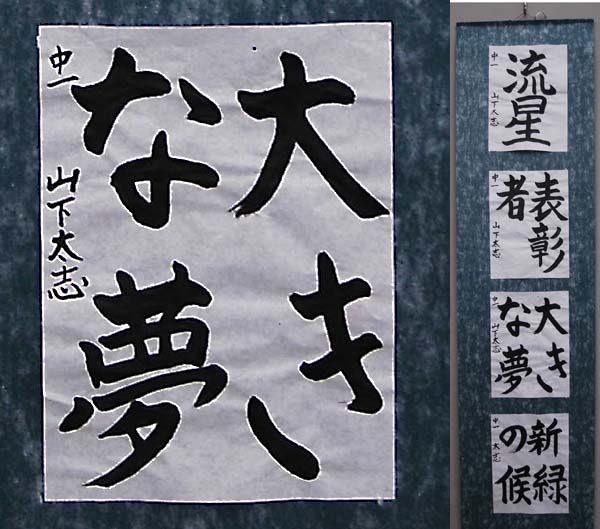 大き
な夢
中一 山下太志
流星
中一 山下太志
表彰
者
中一 山下太志
大き
な夢
中一 山下太志
新緑
の候
中一 太志